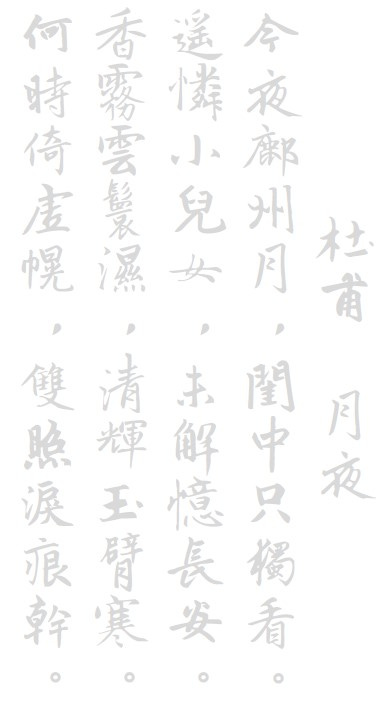 杜甫 月夜
今夜鄜州月，閨中只獨看。
遥憐小兒女，未解憶長安。
香霧雲鬟濕，清輝玉臂寒。
何時倚虛幌，雙照淚痕幹。